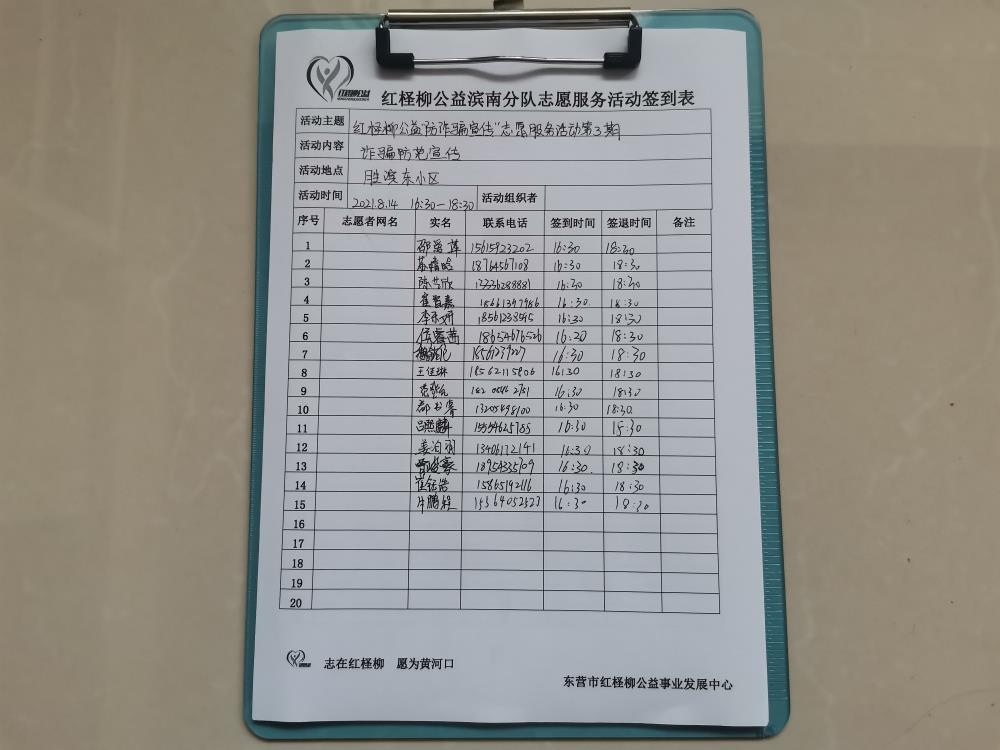 红柽柳公益
红柽柳公益滨南分队志愿服务活动签到表
活动主题 红柽柳公益"防诈骗宣传"志愿服务活动第3期
活动内容 诈骗防范宣传
活动地点 胜滨东小区
活动时间 2021.8.14 16:30-18:30 活动组织者
序号 志愿者网名 实名 联系电话 签到时间 签退时间 备注
1 15615923202 16:30 18:30
2 18764567108 16:30 18:30
3 陈艺欣 16:30 18:30
4 16:30 18:30
5 18561238595 16:30 18:30
6 18654676526 16:20 18:30
7 16:30 18:30
8 王佳琳 18562115906 16:30 18:30
9 16:30 18:30
10 13205498100 16:30 18:30
11 吕熙麟 16:30 18:30
12 姜泊羽 13406172141 16:30 18:30
13 16:30 18:30
14 崔钰浩 15865192116 16:30 18:30
15 15364052523 16:30 18:30
16
17
18
19
20
志在红柽柳 愿为黄河口
东营市红柽柳公益事业发展中心